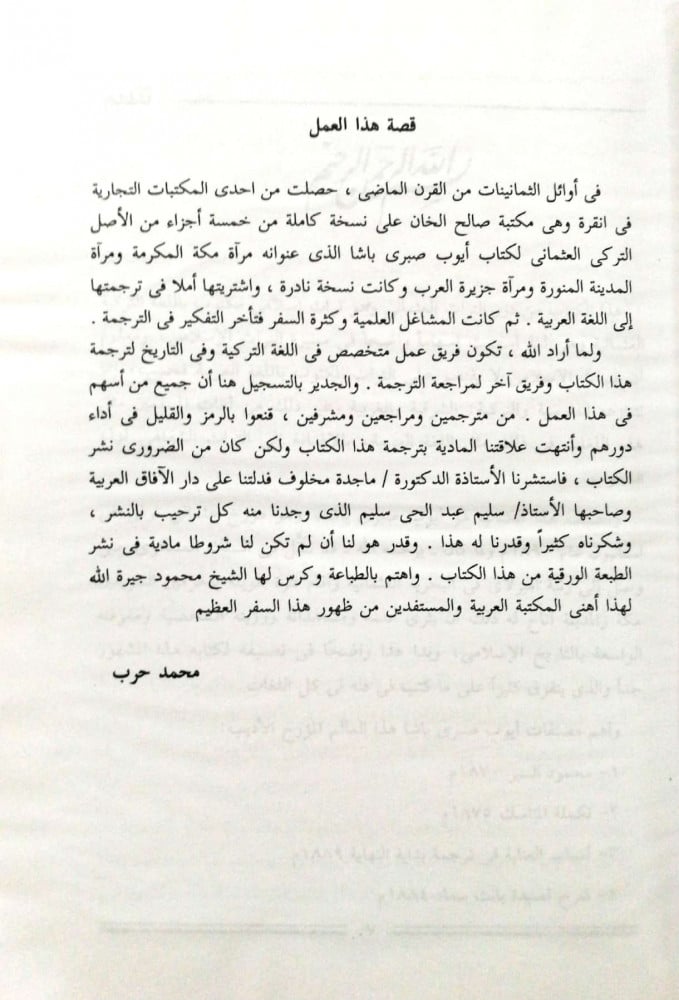 قصة هذا العمل
فى أوائل الثمانينات من القرن الماضى ، حصلت من احدى المكتبات التجارية
فى انقرة وهى مكتبة صالح الخان على نسخة كاملة من خمسة أجزاء من الأصل
التركى العثمانى لكتاب أيوب صبرى باشا الذى عنوانه مرآة مكة المكرمة ومرآة
المدينة المنورة ومرآة جزيرة العرب وكانت نسخة نادرة ، واشتريتها أملا فى ترجمتها
إلى اللغة العربية . ثم كانت المشاغل العلمية وكثرة السفر فتأخر التفكير فى الترجمة .
ولما أراد الله ، تكون فريق عمل متخصص فى اللغة التركية وفى التاريخ لترجمة
هذا الكتاب وفريق آخر لمراجعة الترجمة . والجدير بالتسجيل هنا أن جميع من أسهم
فى هذا العمل . من مترجمين ومراجعين ومشرفين ، قنعوا بالرمز والقليل فى أداء
دورهم وأنتهت علاقتنا المادية بترجمة هذا الكتاب ولكن كان من الضرورى نشر
الكتاب ، فاستشرنا الأستاذة الدكتورة / ماجدة مخلوف فدلتنا على دار الآفاق العربية
وصاحبها الأستاذ/ سليم عبد الحى سليم الذى وجدنا منه كل ترحيب بالنشر ،
وشكرناه كثيراً وقدرنا له هذا . وقدر هو لنا أن لم تكن لنا شروطا مادية فى نشر
الطبعة الورقية من هذا الكتاب . واهتم بالطباعة وكرس لها الشيخ محمود جيرة الله
لهذا أهنى المكتبة العربية والمستفدين من ظهور هذا السفر العظيم
محمد حرب